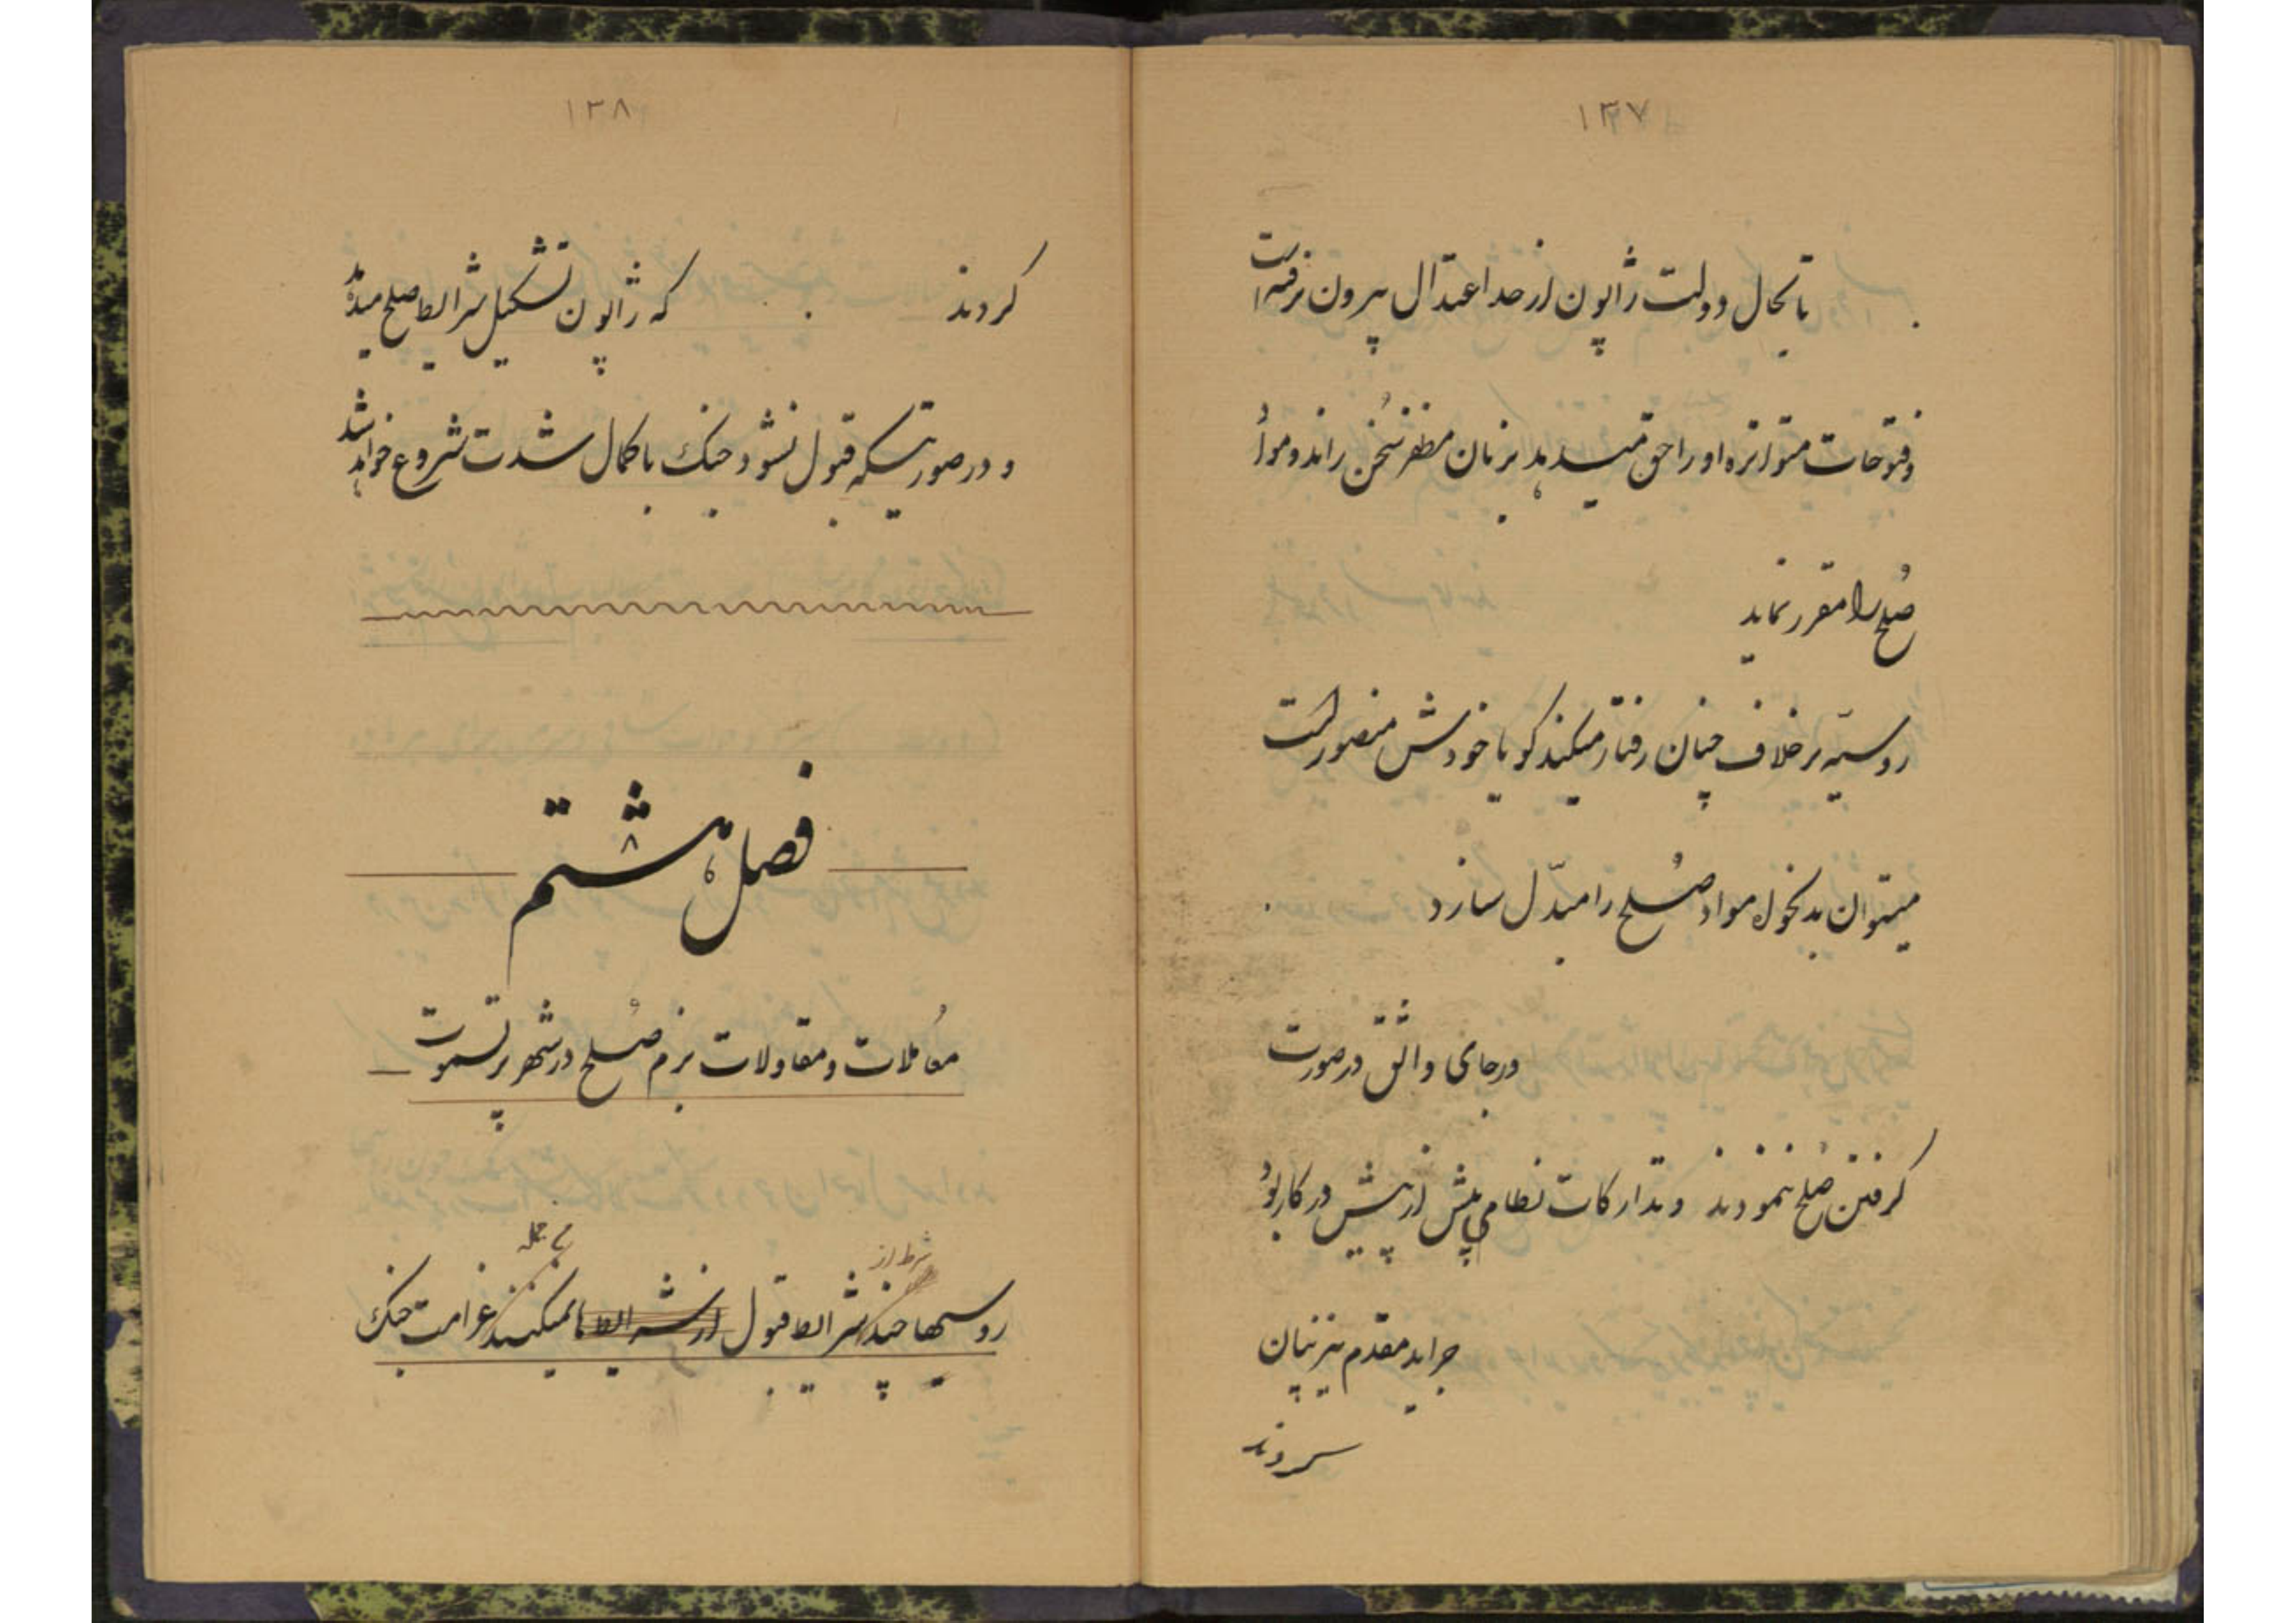 ۱۳۷
تابحال دولت ژاپون از حد اعتدال بیرون نرفته است
و فتوحات متواتره او را حق میدهد بزبان مظفر سخن راند و مواد
صُلح را مقرر نماید
روسیّه برخلاف چنان رفتار میکند گویا خودش منصور است
میتوان بدلخواه مواد صُلح را مبدّل سازد
درجای واثق درصورت
گرفتن صُلح ننمودند و تدارکات نظامی بیش از پیش در کار بود
جراید مقدم نیز بیان
کردند
۱۳۸
کردند که ژاپون تشکیل شرایط صلح میدهد
و درصورتیکه قبول نشود جنک با کمال شدت شروع خواهد شد
فصل هشتم
۸
معاملات و مقاولات بزم صُلح در شهر پرتسموت
شرط از
من جمله
روسیها چند شرایط قبول از شرایط نمیکنند غرامت جنک